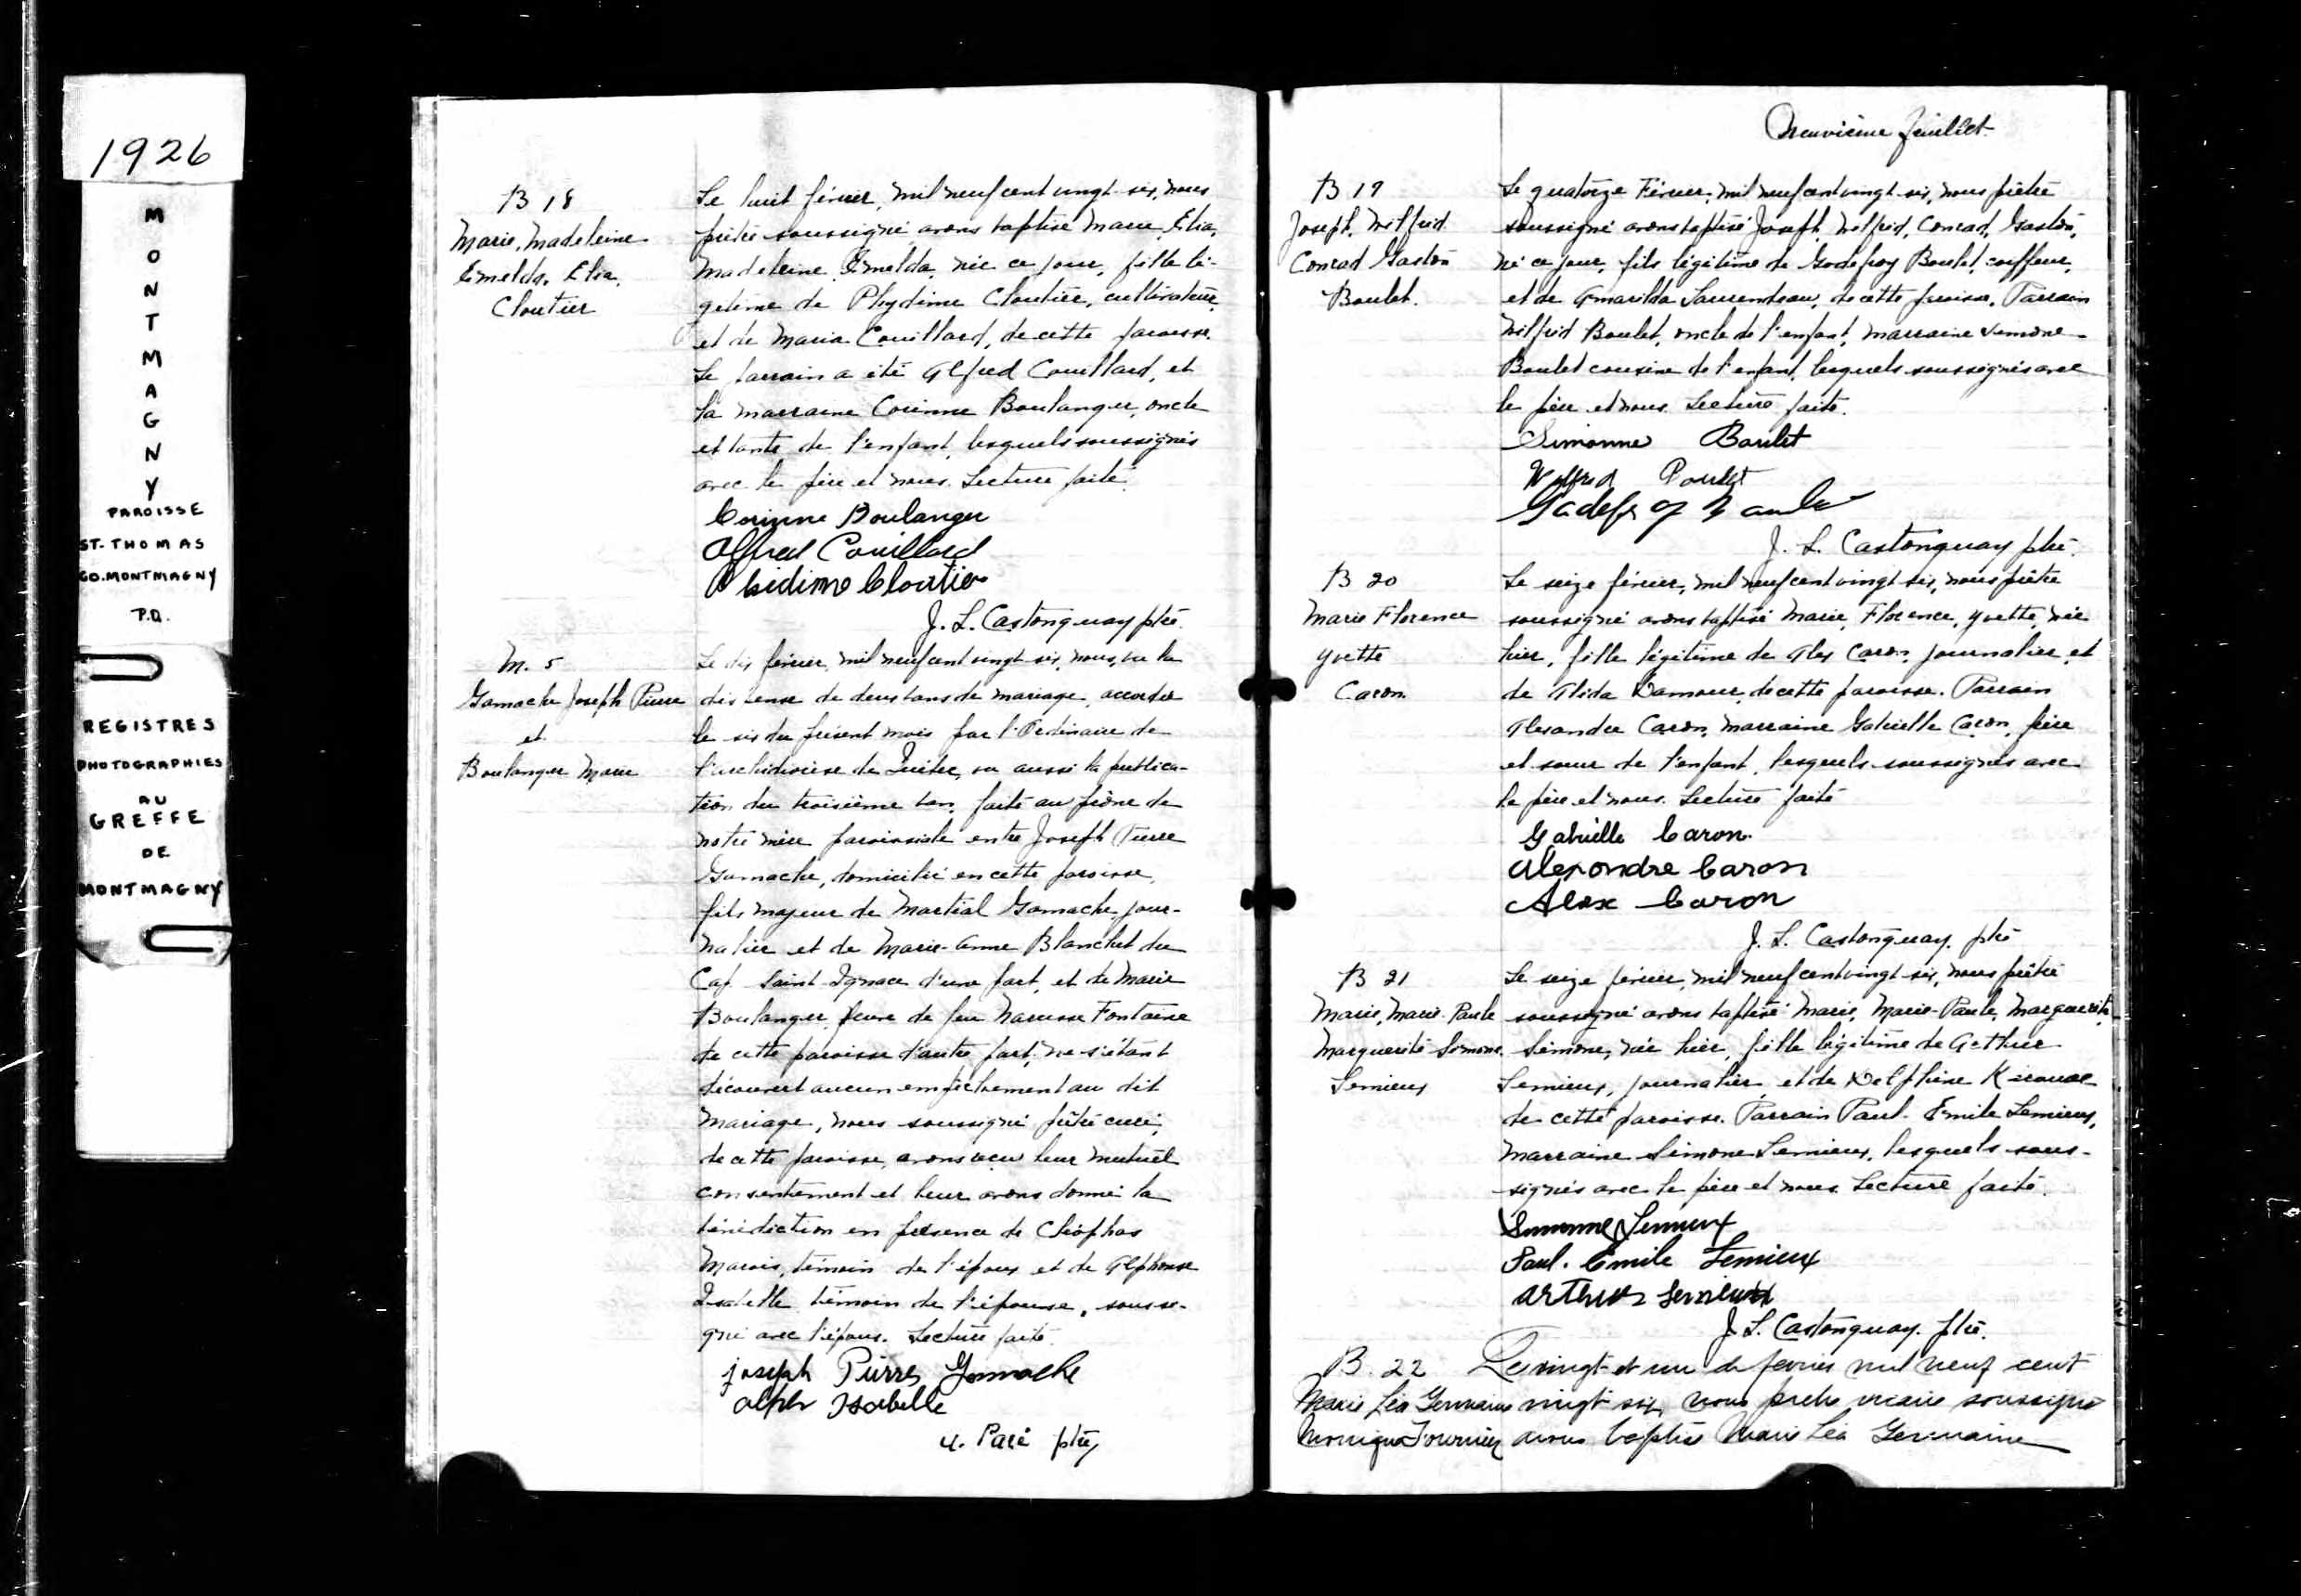 1926
M
O
N
T
M
A
G
N
Y
PAROISSE
ST-THOMAS
CO. MONTMAGNY
P.Q.
REGISTRES
PHOTOGRAPHIES
AU
GREFFE
DE
MONTMAGNY
B 18
Marie, Madeleine
Emelda, Elia,
Cloutier
Le huit février, mil neuf cent vingt-six, nous
prêtre soussigné avons baptisé Marie, Elia,
Madeleine, Emelda, née ce jour, fille lé-
gitime de Phydime Cloutier, cultivateur,
et de Maria Couillard, de cette paroisse.
Le parrain a été Alfred Couillard, et
la marraine Corinne Boulanger, oncle
et tante de l'enfant, lesquels soussignés
avec le père et nous. Lecture faite.
Corinne Boulanger
Alfred Couillard
Phidime Cloutier
J. L. Castonguay ptre.
M. 5
Gamache Joseph Pierre
et
Boulanger Marie
Le dix février, mil neuf cent vingt-six, nous, vu la
dispense de deux bans de mariage accordée
le six du présent mois par l'Ordinaire de
l'archidiocèse de Québec, vu aussi la publica-
tion du troisième ban, faite au prône de
notre messe paroissiale entre Joseph Pierre
Gamache, domicilié en cette paroisse,
fils majeur de Martial Gamache, jour-
nalier et de Marie-Anne Blanchet du
Cap Saint-Ignace d'une part, et de Marie
Boulanger, veuve de feu Narcisse Fontaine
de cette paroisse d'autre part; ne s'étant
découvert aucun empêchement au dit
mariage, nous soussigné prêtre curé,
de cette paroisse, avons reçu leur mutuel
consentement et leur avons donné la
bénédiction en présence de Cléophas
Marois, témoin de l'époux et de Alphonse
Isabelle témoin de l'épouse, soussi-
gné avec l'époux. Lecture faite.
joseph Pierre Gamache
alph Isabelle
U. Paré ptre
Neuvième feuillet
B 19
Joseph, Wilfrid
Conrad Gaston
Boulet.
Le quatorze Février, mil neuf cent vingt-six, nous prêtre
soussigné avons baptisé Joseph, Wilfrid, Conrad, Gaston,
né ce jour, fils légitime de Godefroy Boulet, coiffeur,
et de Amarilda Laurendeau, de cette paroisse. Parrain
Wilfrid Boulet, oncle de l'enfant, marraine Simone
Boulet cousine de l'enfant, lesquels soussignés avec
le père et nous. Lecture faite.
Simonne Boulet
Wilfrid Boulet
Godefroy Boulet
J. L. Castonguay ptre.
B 20
Marie Florence
Yvette
Caron
Le seize février, mil neuf cent vingt-six, nous prêtre
soussigné avons baptisé Marie, Florence, Yvette, née
hier, fille légitime de Alex Caron, journalier, et
de Alida Damour, de cette paroisse. Parrain
Alexandre Caron, marraine Gabrielle Caron, frère
et soeur de l'enfant, lesquels soussignés avec
le père et nous. Lecture faite
Gabrielle Caron
Alexandre Caron
Alex Caron
J. L. Castonguay. ptre
B 21
Marie, Marie-Paule
Marguerite-Simone.
Lemieux
Le seize février, mil neuf cent vingt-six, nous prêtre
soussigné avons baptisé Marie, Marie-Paule, Marguerite,
Simone, née hier, fille légitime de Arthur
Lemieux, journalier et de Delphine Kirouac
de cette paroisse. Parrain Paul-Emile Lemieux,
marraine Simone Lemieux, lesquels sous-
signés avec le père et nous. Lecture faite.
Simonne Lemieux
Paul. Emile Lemieux
Arthur Lemieux
J. L. Castonguay. ptre.
B. 22
Marie Léa Germaine
Monique Fournier
Le vingt et un de fevrier mil neuf cent
vingt six, nous pretre vicaire soussigné
avons baptisé Marie Léa Germaine